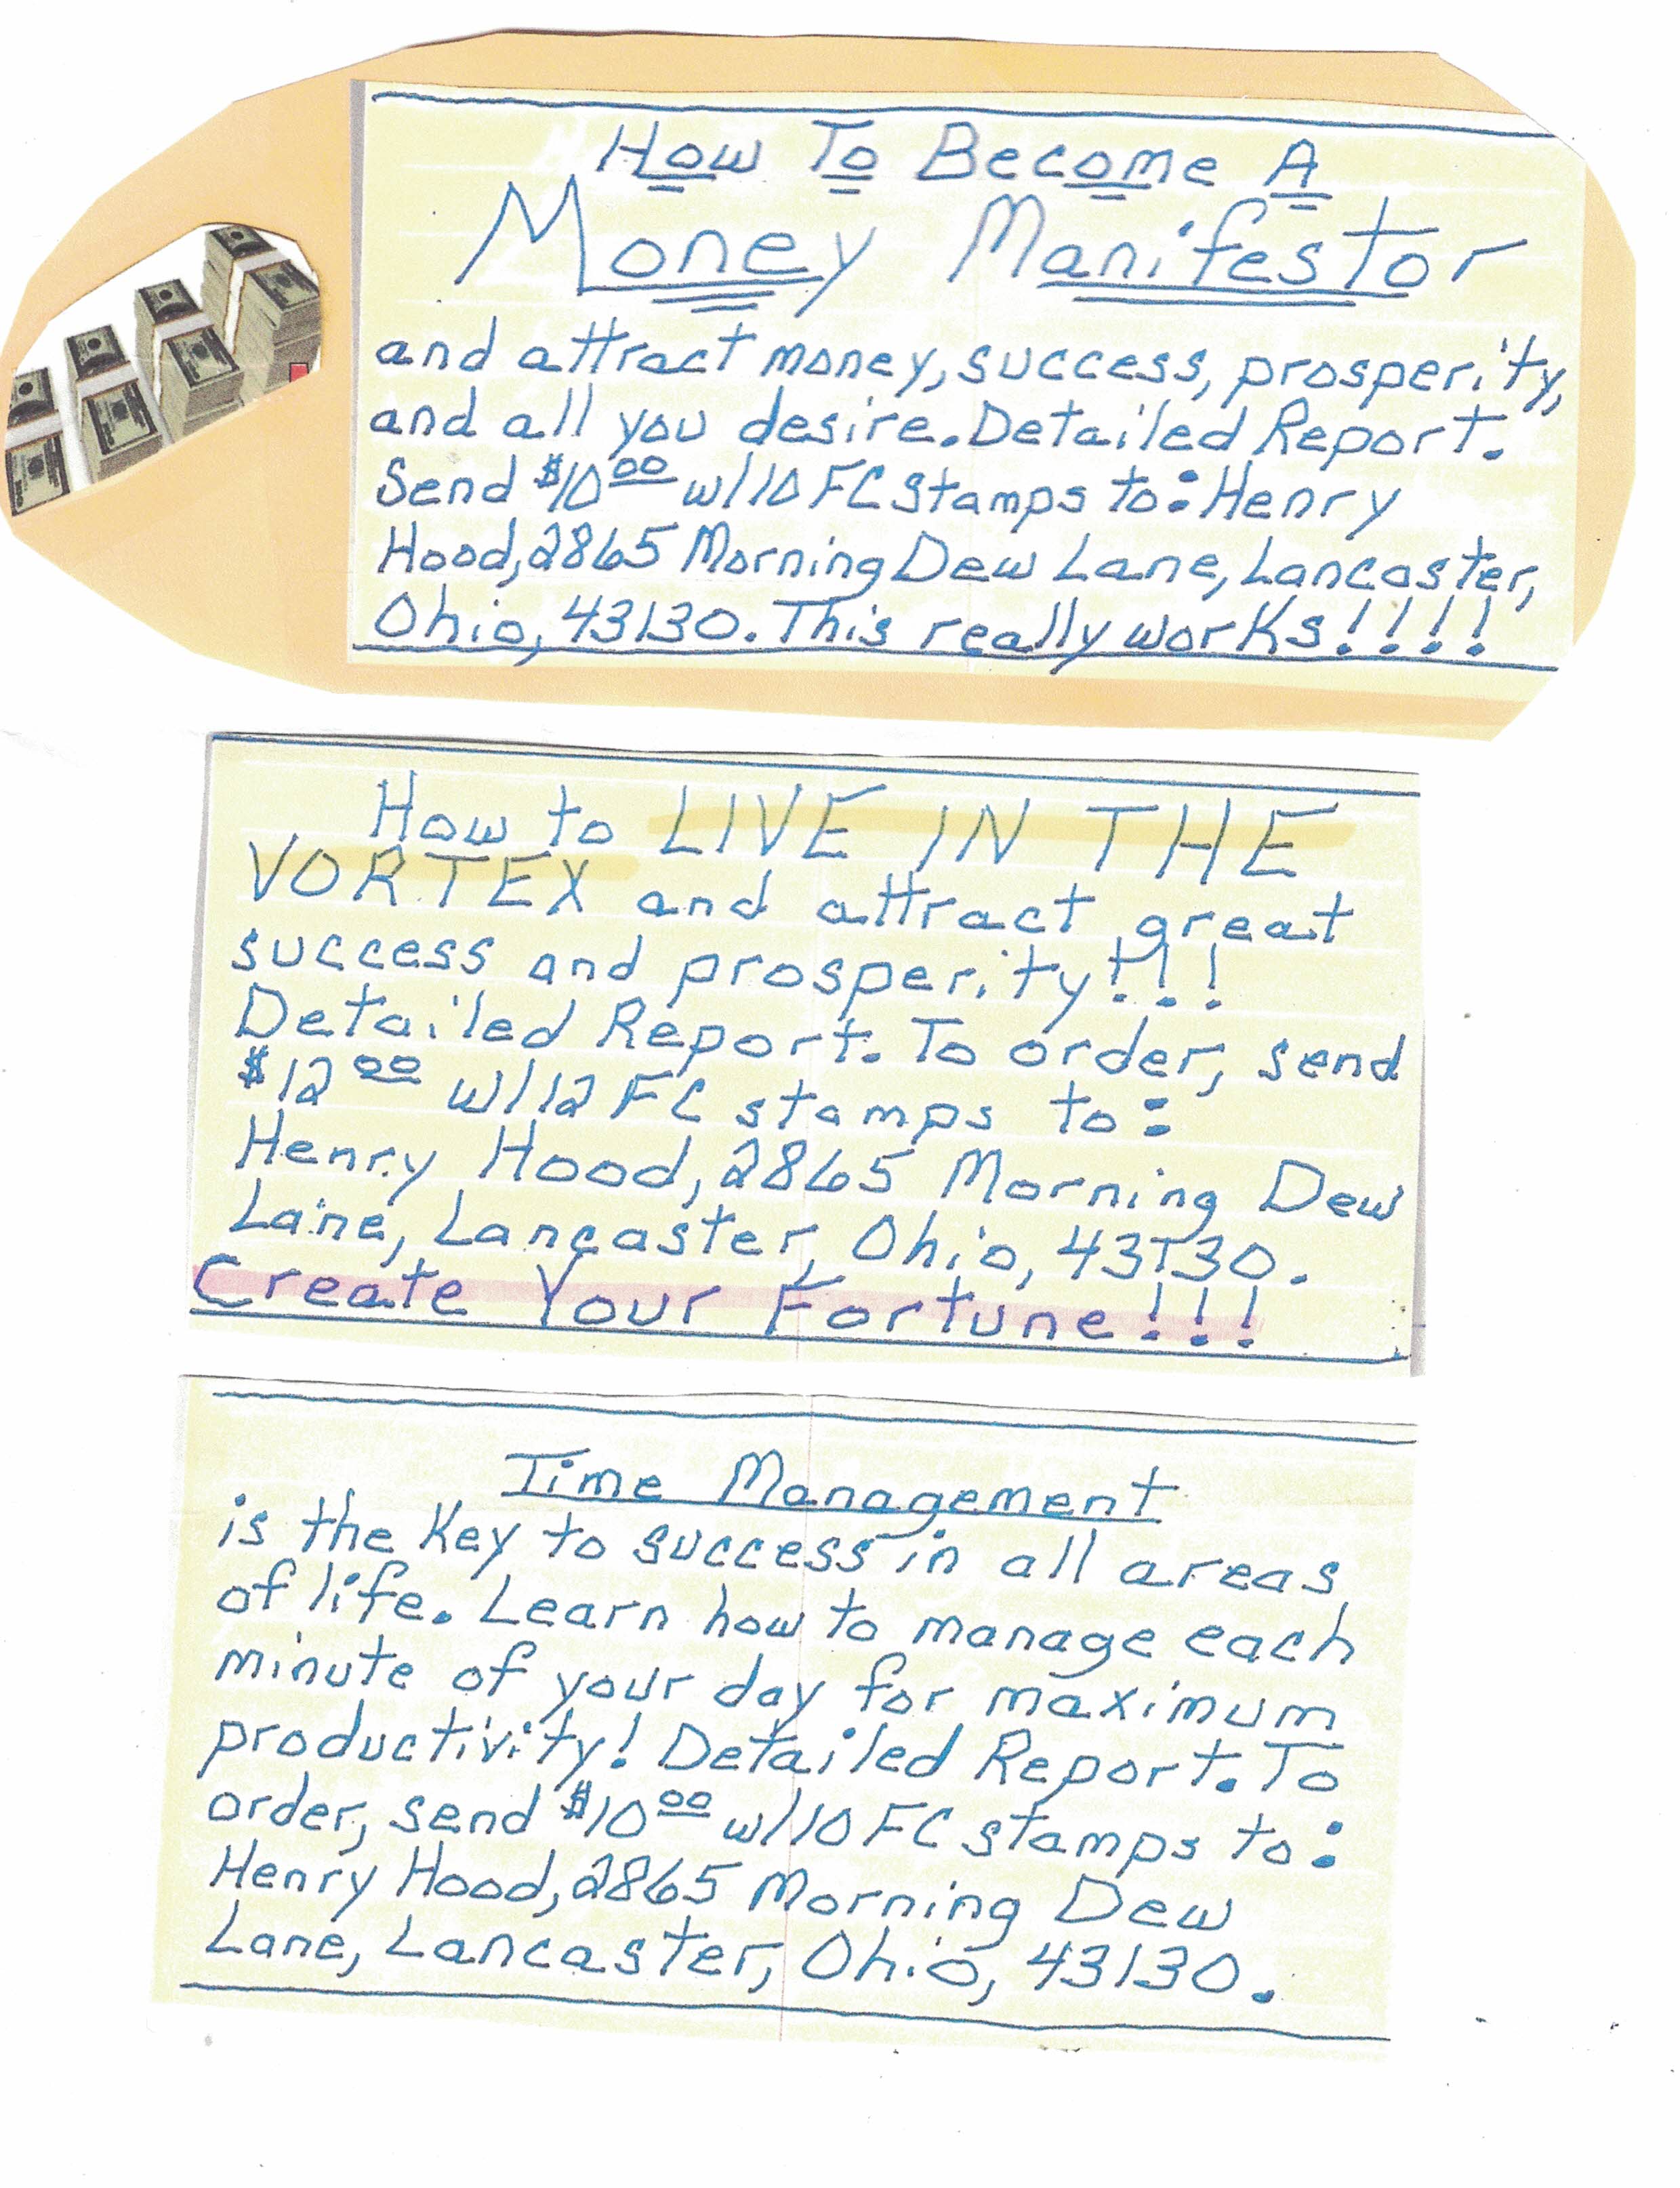 How To Become A
Money Manifestor
and attract money, success, prosperity,
and all you desire. Detailed Report.
Send $10.00 w/10 FC stamps to: Henry
Hood, 2865 Morning Dew Lane, Lancaster,
Ohio, 43130. This really works!!!!
How to LIVE IN THE
VORTEX and attract great
success and prosperity!!!
Detailed Report. To order, send
$12.00 w/12 FC stamps to:
Henry Hood, 2865 Morning Dew
Lane, Lancaster, Ohio, 43130.
Create Your Fortune!!!
Time Management
is the Key to success in all areas
of life. Learn how to manage each
minute of your day for maximum
productivity! Detailed Report. To
order, send $10.00 w/10 FC stamps to:
Henry Hood, 2865 Morning Dew
Lane, Lancaster, Ohio, 43130.